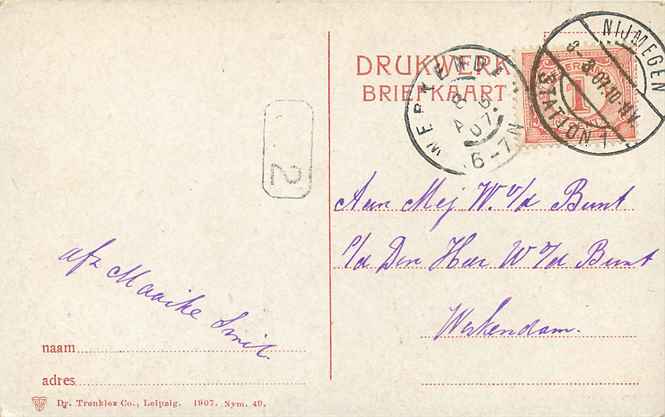 DRUKWERK
BRIEFKAART
NIJMEGEN
8-8.07.10-
STATION 1
WERKENDAM
8 5
A 07
6-7N
1
2
Aan Mej W. v/d Bunt
p/a Den Heer W v/d Bunt
Werkendam.
afz Maaike Smit.
naam
adres
Dr. Trenkler Co., Leipzig. 1907. Nym. 49.